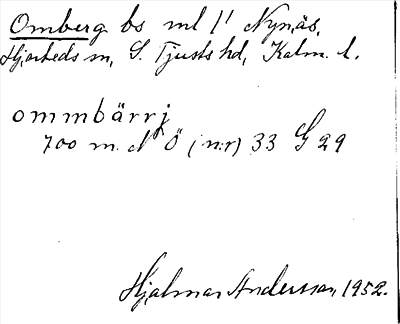 Omberg bs ml 1' Nynäs,
Hjorteds sn, S. Tjusts hd, Kalm. l.
ommbärrj
700 m. d Ö (n:r) 33 G 29
Hjalmar Andersson, 1952.